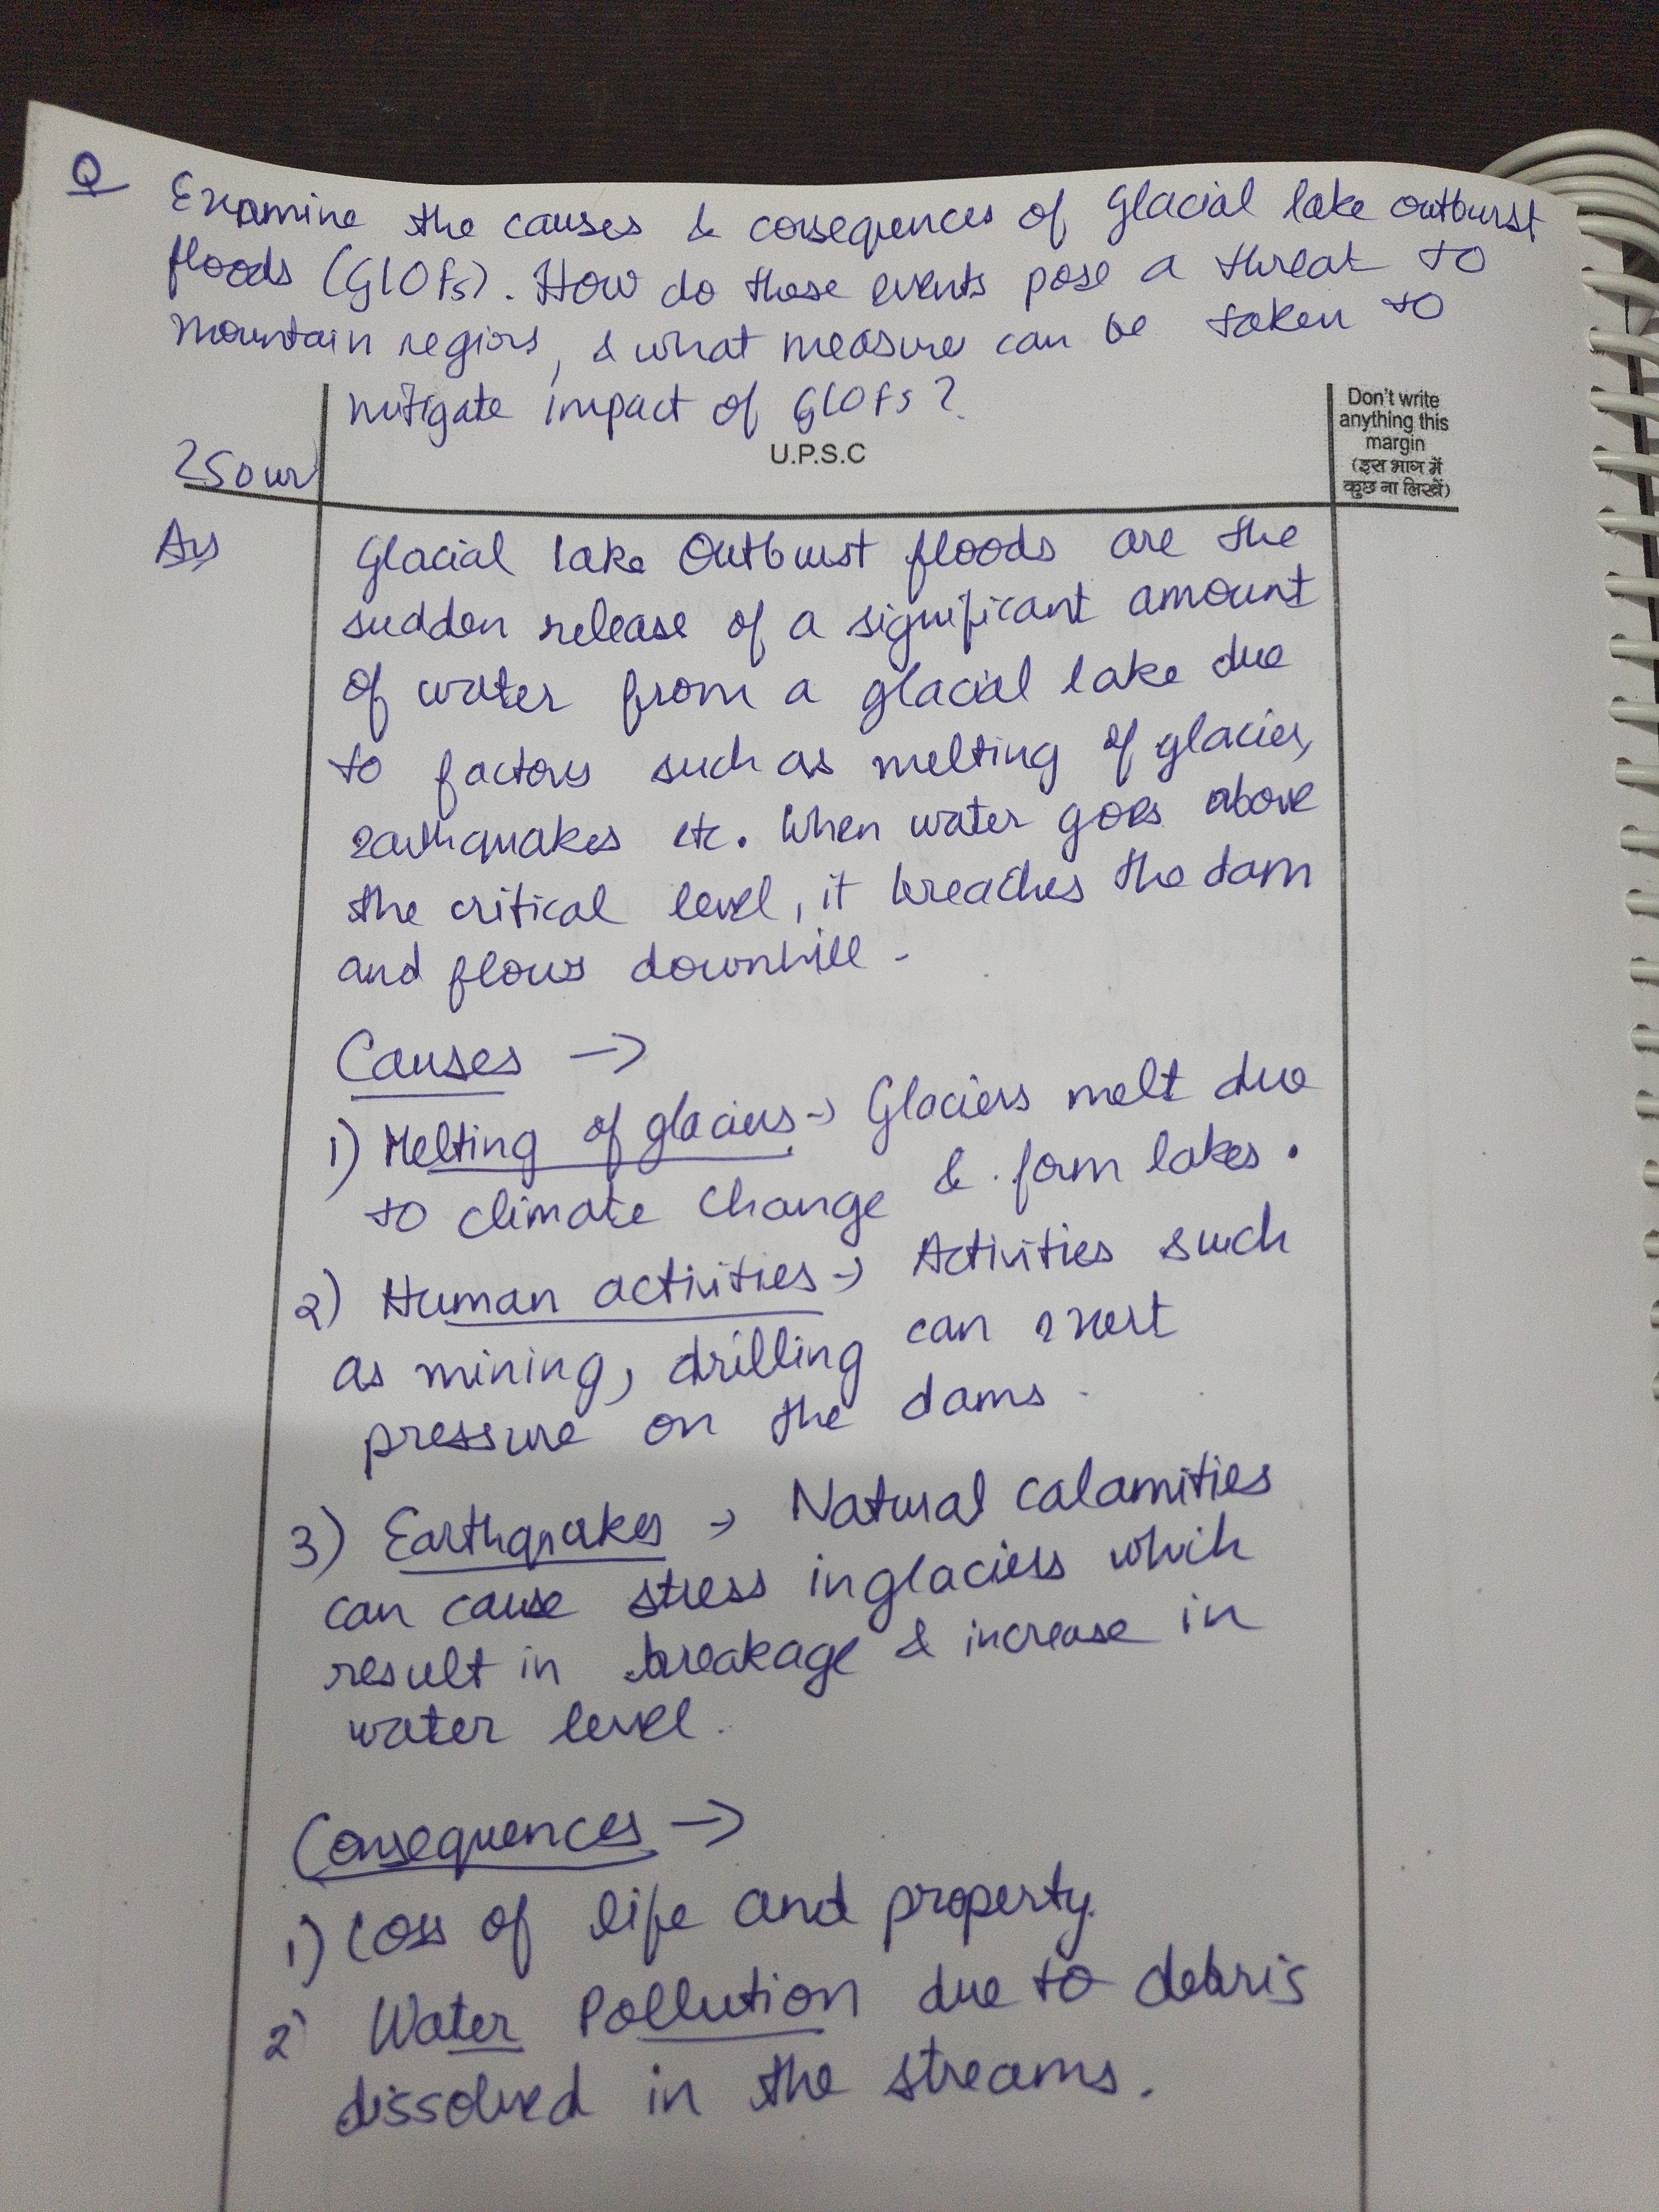 Q Examine the causes & consequences of Glacial lake outburst
floods (GLOFs). How do these events pose a threat to
mountain regions, & what measure can be taken to
mitigate impact of GLOFs?
Don't write
anything this
margin
(इस भाग में
कुछ ना लिखें)
U.P.S.C
250 wr
Ans
Glacial lake Outburst floods are the
sudden release of a significant amount
of water from a glacial lake due
to factors such as melting of glacier,
earthquakes etc. When water goes above
the critical level, it breaches the dam
and flows downhill.
Causes →
1) Melting of glaciers → Glaciers melt due
to climate change & form lakes.
2) Human activities → Activities such
as mining, drilling can exert
pressure on the dams.
3) Earthquakes → Natural calamities
can cause stress in glaciers which
result in breakage & increase in
water level.
Consequences →
1) Loss of life and property.
2) Water Pollution due to debris
dissolved in the streams.